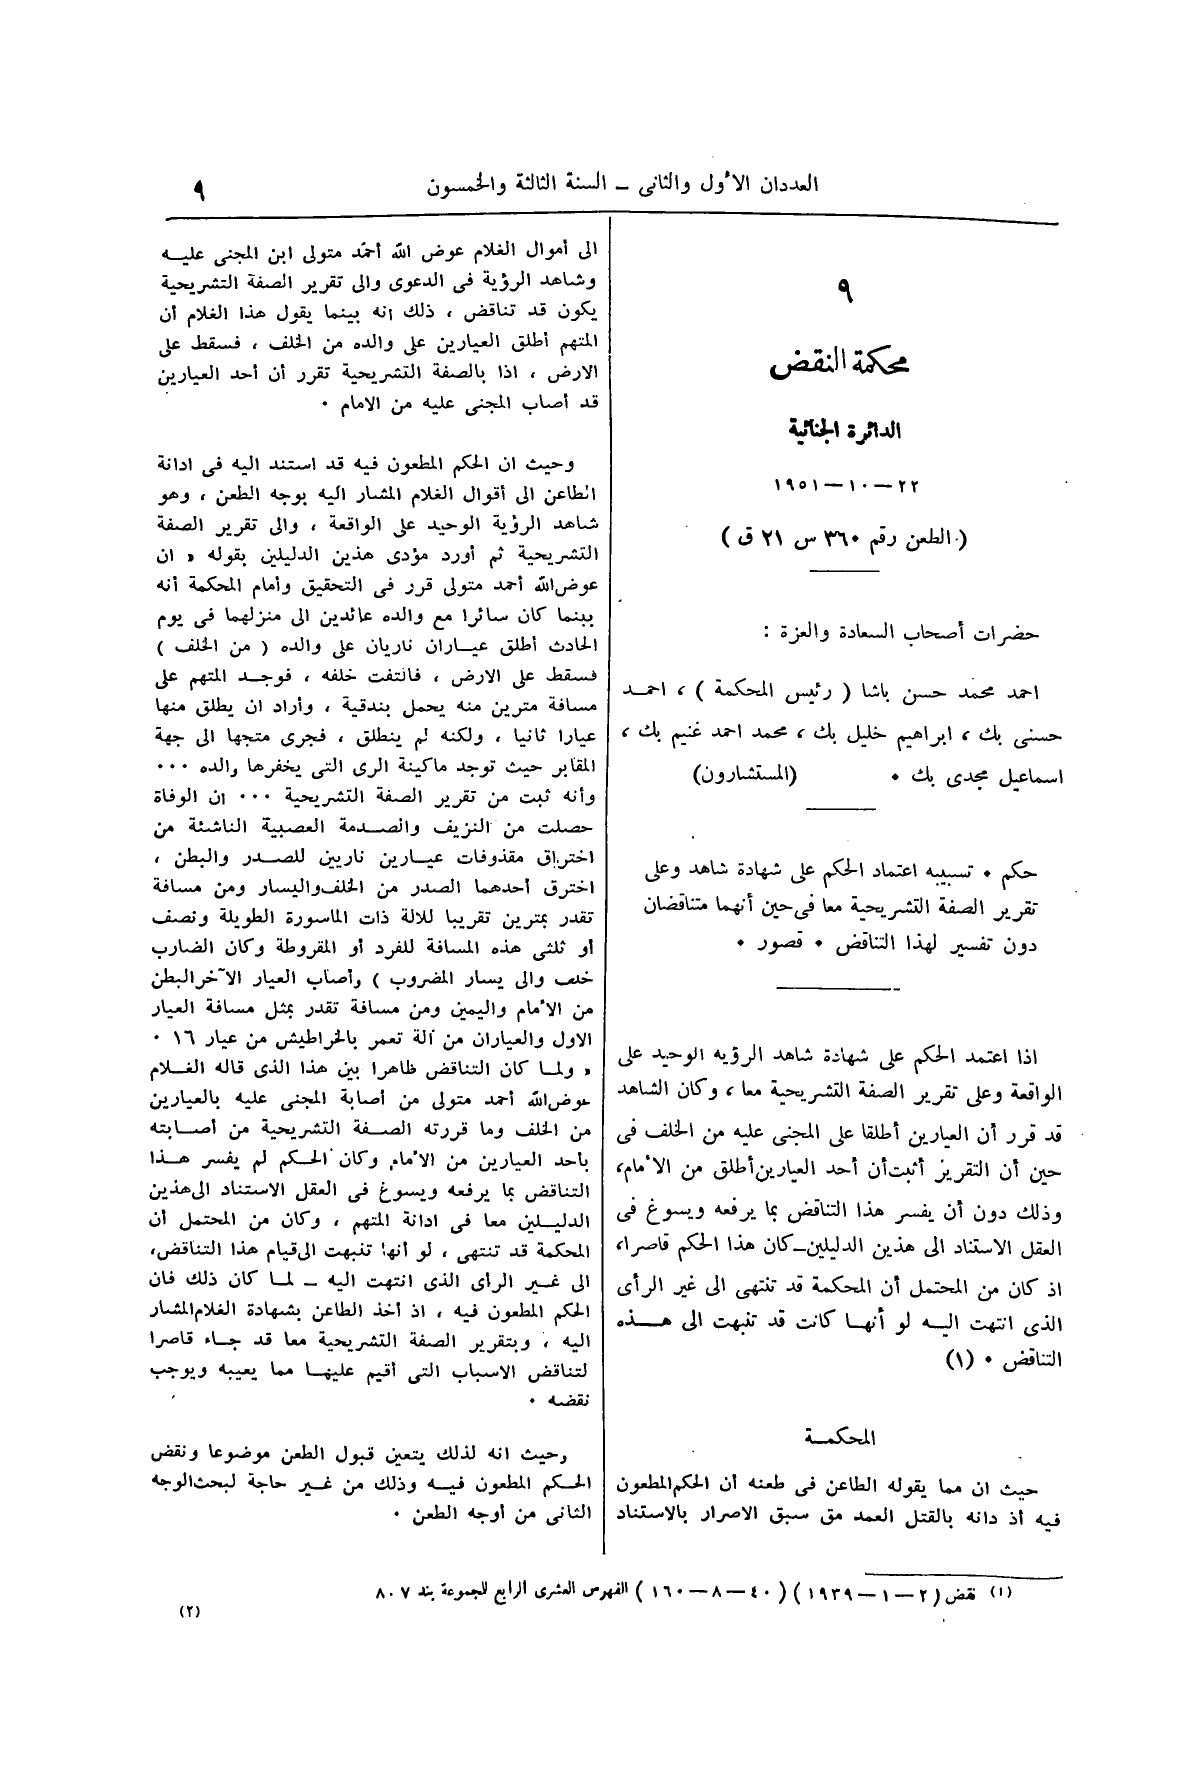 العددان الأول والثانى – السنة الثالثة والخمسون
٩
٩
محكمة النقض
الدائرة الجنائية
٢٢ – ١٠ – ١٩٥١
( الطعن رقم ٣٦٠ س ٢١ ق )
حضرات أصحاب السعادة والعزة :
احمد محمد حسن باشا ( رئيس المحكمة ) ، احمـد
حسنى بك ، ابراهيم خليل بك ، محمد احمد غنيم بك ،
اسماعيل مجدى بك . (المستشارون)
حكم . تسبيبه اعتماد الحكم على شهادة شاهد وعلى
تقرير الصفة التشريحية معا فى حين أنهما متناقضان
دون تفسير لهذا التناقض . قصور .
اذا اعتمد الحكم على شهادة شاهد الرؤيه الوحيد على
الواقعة وعلى تقرير الصفة التشريحية معا ، وكان الشاهد
قد قرر أن العيارين أطلقا على المجنى عليه من الخلف فى
حين أن التقرير أثبت أن أحد العيارين أطلق من الأمام،
وذلك دون أن يفسر هذا التناقض بما يرفعه ويسوغ فى
العقل الاستناد الى هذين الدليلين–كان هذا الحكم قاصرا،
اذ كان من المحتمل أن المحكمة قد تنتهى الى غير الرأى
الذى انتهت اليـه لو أنهـا كانت قد تنبهت الى هـــذه
التناقض . (١)
المحكمـة
حيث ان مما يقوله الطاعن فى طعنه أن الحكم المطعون
فيه أذ دانه بالقتل العمد مق سبق الاصرار بالاستناد
الى أموال الغلام عوض الله أحمد متولى ابن المجنى عليـه
وشاهد الرؤية فى الدعوى والى تقرير الصفة التشريحية
يكون قد تناقض ، ذلك انه بينما يقول هذا الغلام أن
المتهم أطلق العيارين على والده من الخلف ، فسقط على
الارض ، اذا بالصفة التشريحية تقرر أن أحد العيارين
قد أصاب المجنى عليه من الامام .
وحيث ان الحكم المطعون فيه قد استند اليه فى ادانة
الطاعن الى أقوال الغلام المشار اليه بوجه الطعن ، وهو
شاهد الرؤية الوحيد على الواقعة ، والى تقرير الصفة
التشريحية ثم أورد مؤدى هذين الدليلين بقوله « ان
عوض الله أحمد متولى قرر فى التحقيق وأمام المحكمة أنه
بينما كان سائرا مع والده عائدين الى منزلهما فى يوم
الحادث أطلق عيـاران ناريان على والده ( من الخلف )
فسقط على الارض ، فالتفت خلفه ، فوجـد المتهم على
مسافة مترين منه يحمل بندقية ، وأراد ان يطلق منها
عيارا ثانيا ، ولكنه لم ينطلق ، فجرى متجها الى جهة
المقابر حيث توجد ماكينة الرى التى يخفرها والده ...
وأنه ثبت من تقرير الصفة التشريحية ... ان الوفاة
حصلت من النزيف والصـدمة العصبية الناشئة من
اختراق مقذوفات عيـارين ناريين للصـدر والبطن ،
اخترق أحدهما الصدر من الخلف واليسار ومن مسافة
تقدر بمترين تقريبا للالة ذات الماسورة الطويلة ونصف
أو ثلثى هذه المسافة للفرد أو المقروطة وكان الضارب
خلف والى يسار المضروب ) وأصاب العيار الآخر البطن
من الأمام واليمين ومن مسافة تقدر بمثل مسافة العيار
الاول والعياران من آلة تعمر بالخراطيش من عيار ١٦ .
« ولمـا كان التناقض ظاهرا بين هذا الذى قاله الغـلام
عوض الله أحمد متولى من أصابة المجنى عليه بالعيارين
من الخلف وما قررته الصـفة التشريحية من أصـابته
بأحد العيارين من الأمام وكان الحـكم لم يفسر هـذا
التناقض بما يرفعه ويسوغ فى العقل الاستناد الى هذين
الدليـلين معا فى ادانة المتهم ، وكان من المحتمل أن
المحكمة قد تنتهى ، لو أنها تنبهت الى قيام هذا التناقض،
الى غـير الرأى الذى انتهت اليه – لمـا كان ذلك فان
الحكم المطعون فيه ، اذ أخذ الطاعن بشهادة الغلام المشار
اليه ، وبتقرير الصفة التشريحية معا قد جـاء قاصرا
لتناقض الاسباب التى أقيم عليهـا مما يعيبه ويوجب
نقضه .
وحيث انه لذلك يتعين قبول الطعن موضوعا ونقض
الحـكم المطعون فيـه وذلك من غـير حاجة لبحث الوجه
الثانى من أوجه الطعن .
(١) نقض ( ٢ – ١ – ١٩٣٩ ) ( ٤٠ – ٨ – ١٦٠ ) الفهرس العشرى الرابع للجموعة بند ٨٠٧
(٢)